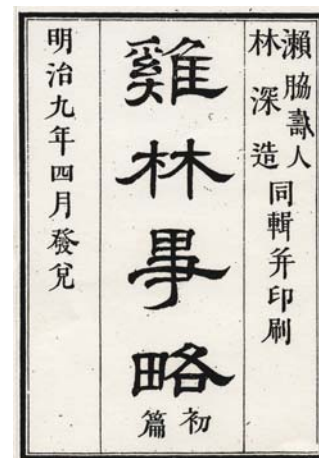 瀨脇壽人
林深造
同輯并印刷
雞林事略
初篇
明治九年四月發兌